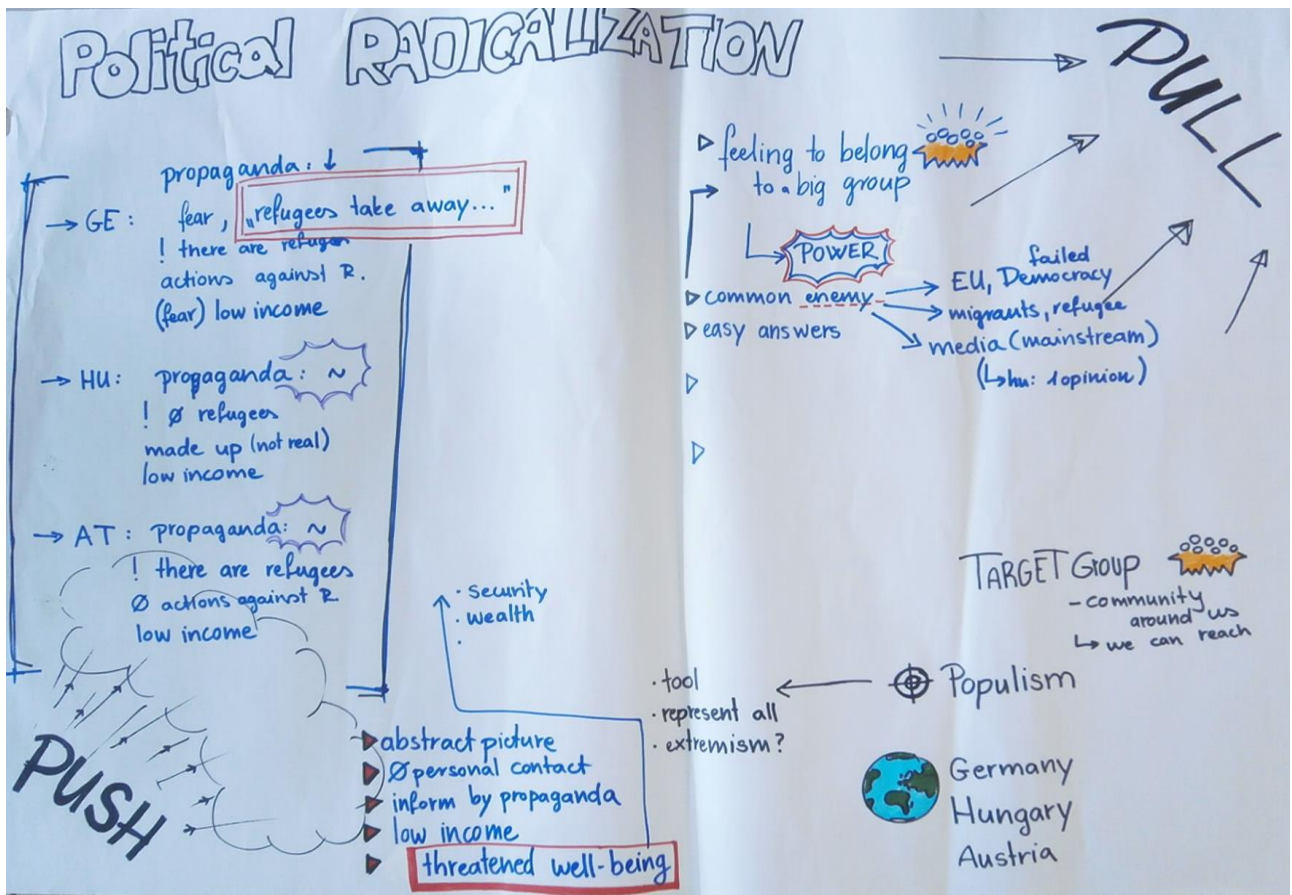 Political RADICALIZATION
PULL
propaganda: ↓
→ GE: fear, „refugees take away..."
! there are refugen
actions against R.
(fear) low income
→ HU: propaganda: ~
! Ø refugees
made up (not real)
low income
→ AT: propaganda: ~
! there are refugees
Ø actions against R.
low income
PUSH
· security
· wealth
·
abstract picture
Ø personal contact
inform by propaganda
low income
threatened well-being
feeling to belong
to a big group
POWER
common enemy
easy answers
failed
EU, Democracy
migrants, refugee
media (mainstream)
(↳hu: 1 opinion)
TARGET Group
- community
around us
↳ we can reach
Populism
· tool
· represent all
· extremism?
Germany
Hungary
Austria